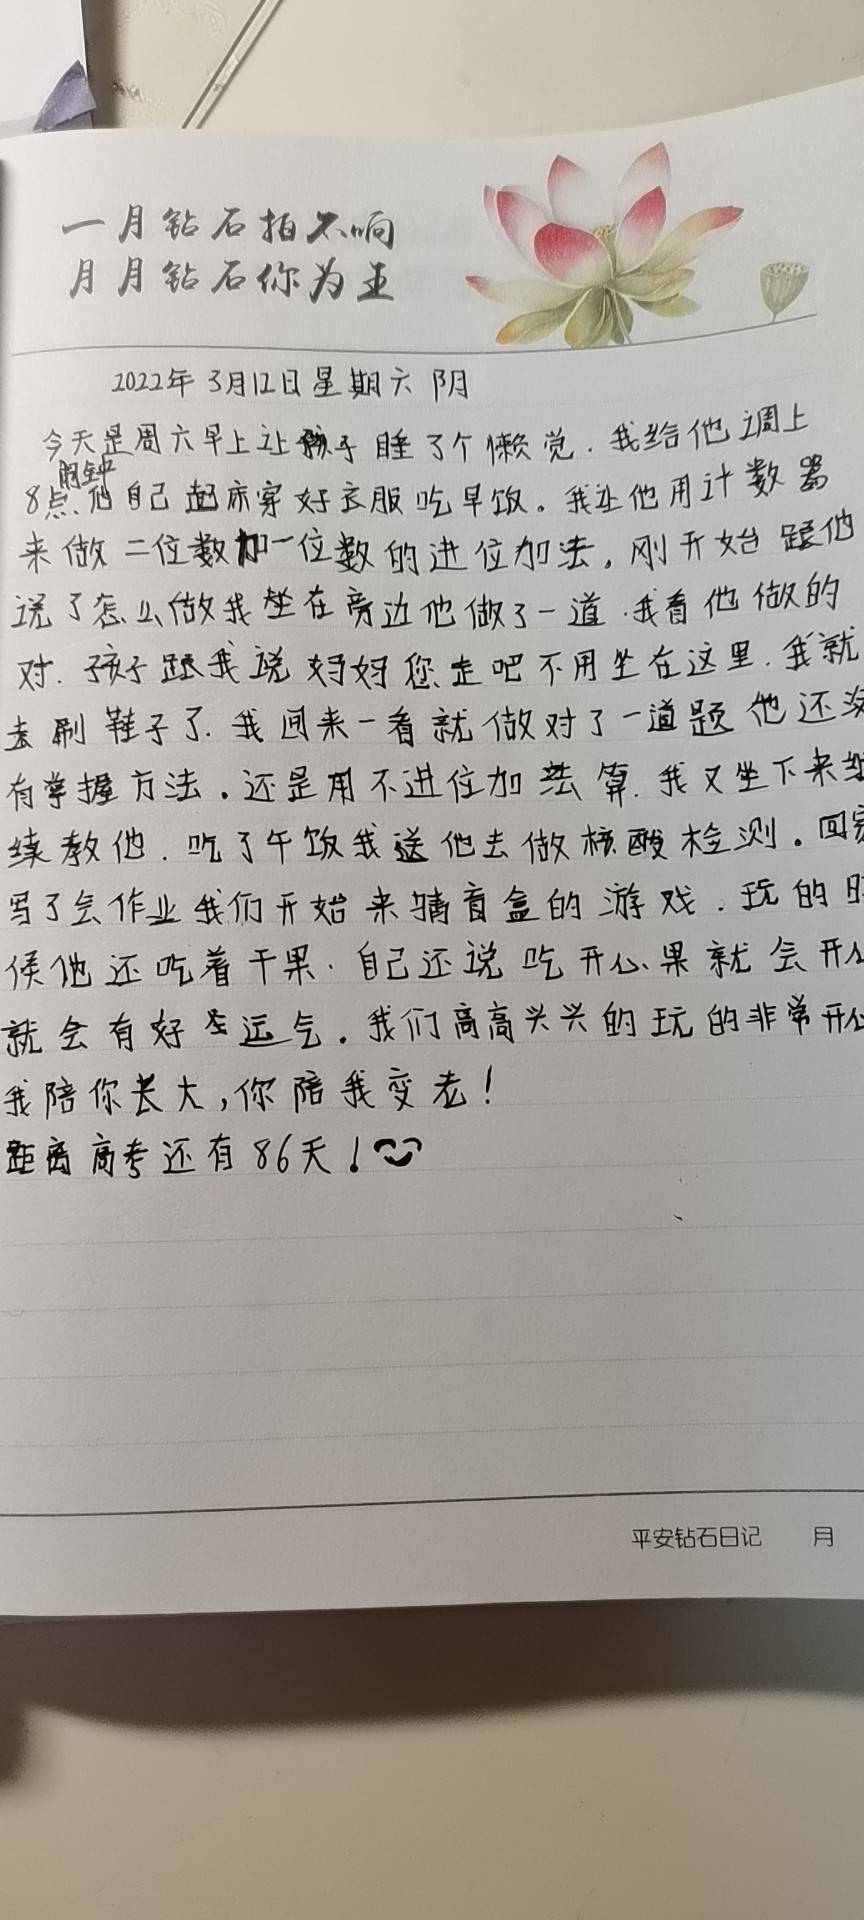 一月钻石拍不响
月月钻石你为主
2022年3月12日星期六 阴
今天是周六早上让孩子睡了个懒觉.我给他调上
闹钟
8点.他自己起床穿好衣服吃早饭。我让他用计数器
来做二位数加一位数的进位加法,刚开始跟他
说了怎么做我坐在旁边他做了一道.我看他做的
对.孩子跟我说妈妈您走吧不用坐在这里.我就
去刷鞋子了.我回来一看就做对了一道题他还没
有掌握方法。还是用不进位加法算.我又坐下来继
续教他.吃了午饭我送他去做核酸检测。回家
写了会作业我们开始来猜盲盒的游戏.玩的时
候他还吃着干果.自己还说吃开心果就会开心
就会有好运气。我们高高兴兴的玩的非常开心
我陪你长大,你陪我变老!
距离高考还有86天!
平安钻石日记 月